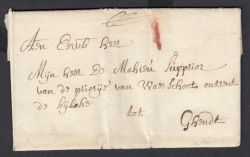 Aen Eerwb Heer
Mijn heer De Mahieu Supprior
van de priorije van Waerschoots ontrent
de Bijloke
tot
Ghendt